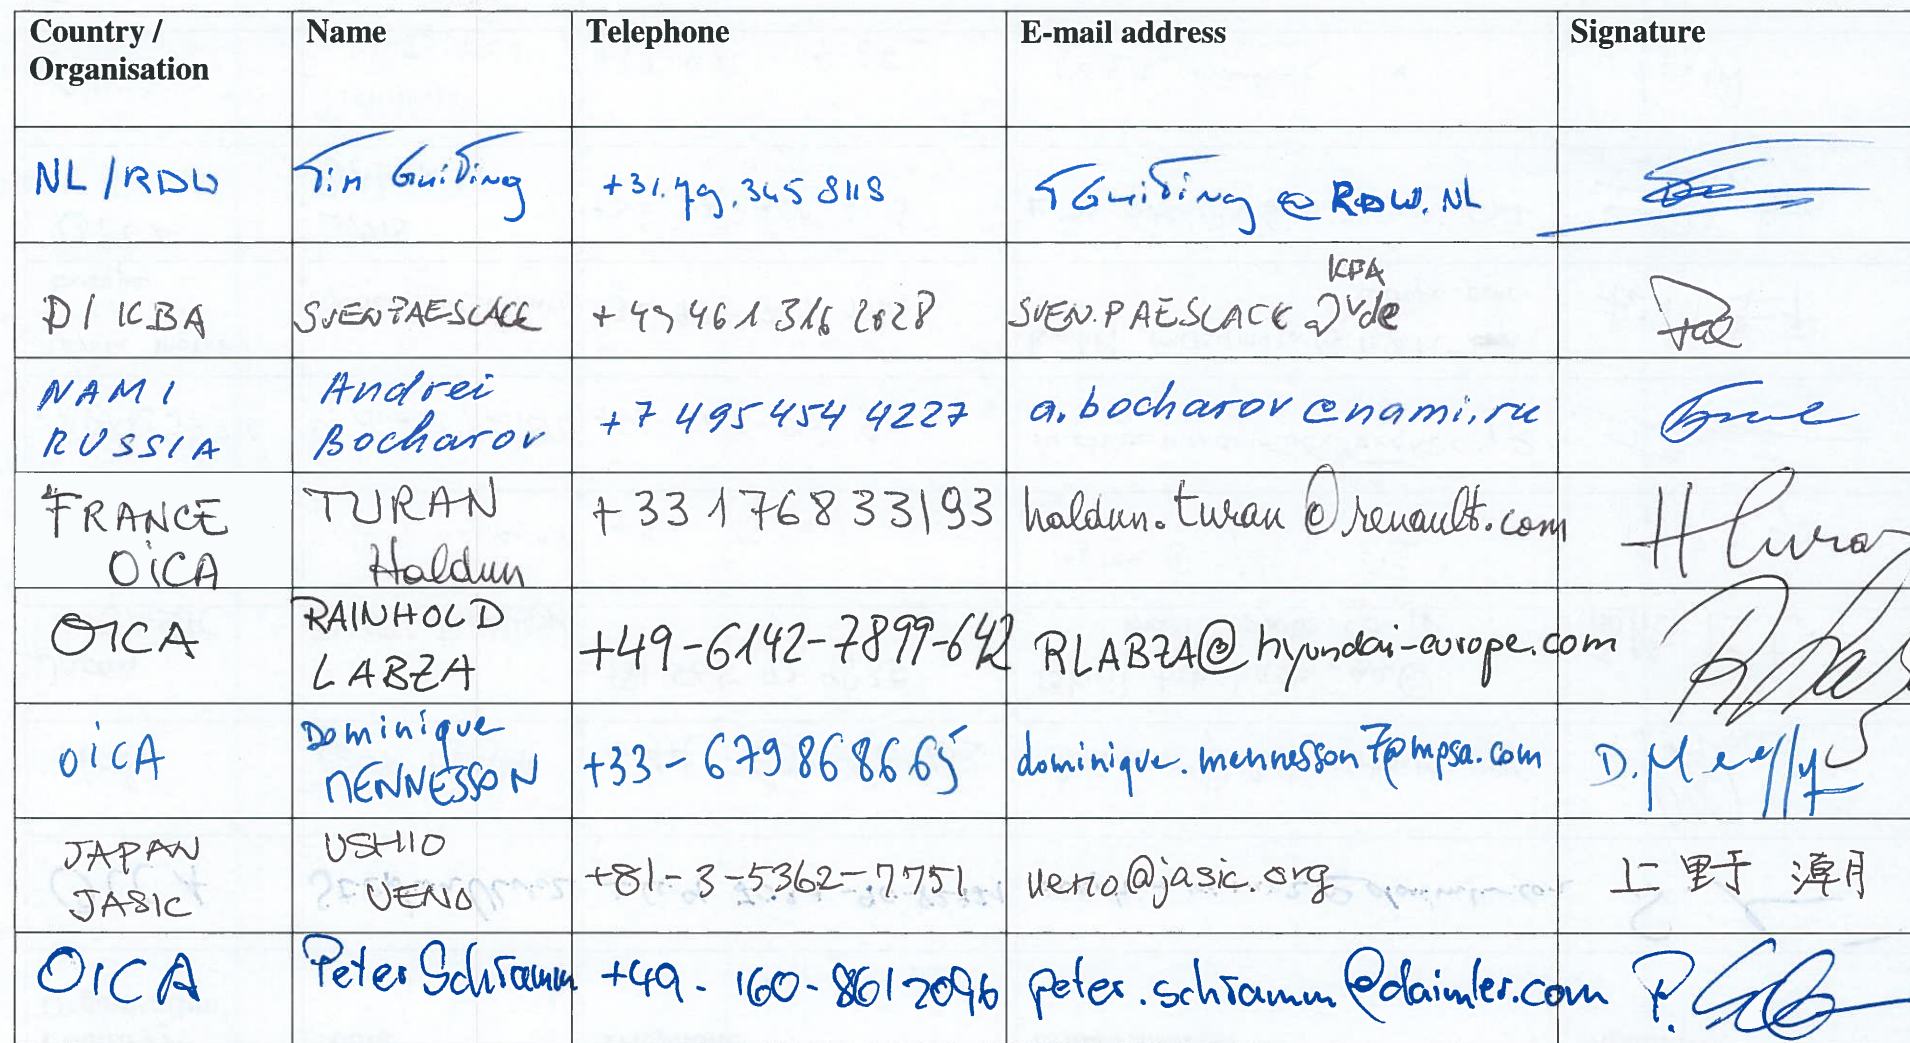 Country / Organisation Name Telephone E-mail address Signature
NL/RDW Tim Guiting +31.79.345 8118 TGuiting @ RDW.NL
D/ KBA SVEN PAESLACK +49 461 316 2028 SVEN.PAESLACK @ KBA.de
NAMI RUSSIA Andrei Bocharov +7 495 454 4227 a.bocharov@nami.ru
FRANCE OiCA TURAN Haldun +33 1 76833193 haldun.turan@renault.com H Turan
OICA RAINHOLD LABZA +49-6142-7899-642 RLABZA@hyundai-europe.com
OiCA Dominique MENNESSON +33-679868665 dominique.mennesson7@mpsa.com
JAPAN JASIC USHIO UENO +81-3-5362-7751 ueno@jasic.org 上野 潮
OICA Peter Schramm +49-160-8612096 peter.schramm@daimler.com